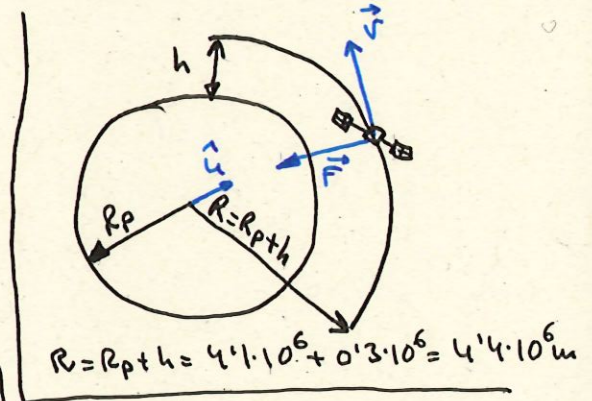 h
v⃗
F⃗
û
Rp
R=Rp+h
R=Rp+h=4'1·10⁶+0'3·10⁶=4'4·10⁶m